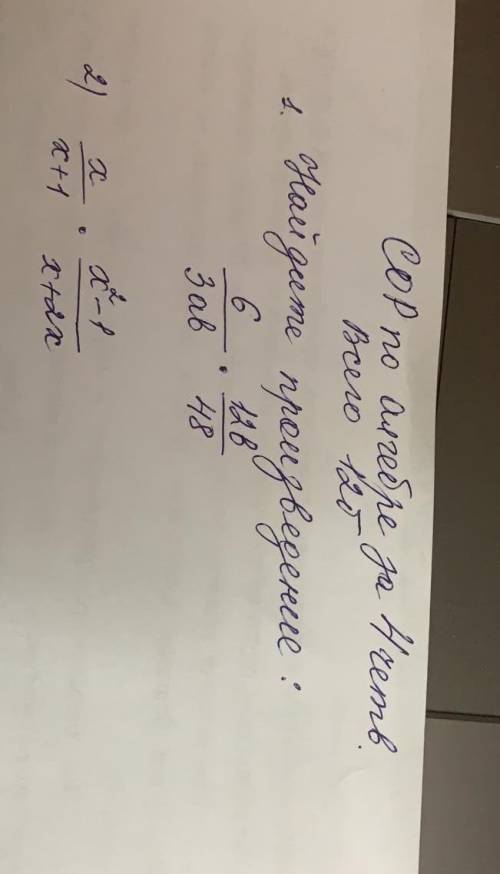 СОР по алгебре за 4 четв.
Всего 12б
1. Найдите произведение:
6/3ав · 12в/48
2) x/x+1 · x²-1/x+2x